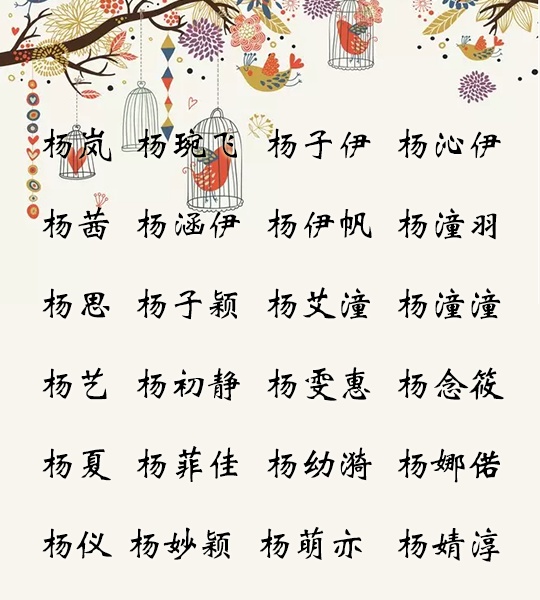 杨岚 杨琬飞 杨子伊 杨沁伊
杨茜 杨涵伊 杨伊帆 杨潼羽
杨思 杨子颖 杨艾潼 杨潼潼
杨艺 杨初静 杨雯惠 杨念筱
杨夏 杨菲佳 杨幼漪 杨娜偌
杨仪 杨妙颖 杨萌亦 杨婧淳